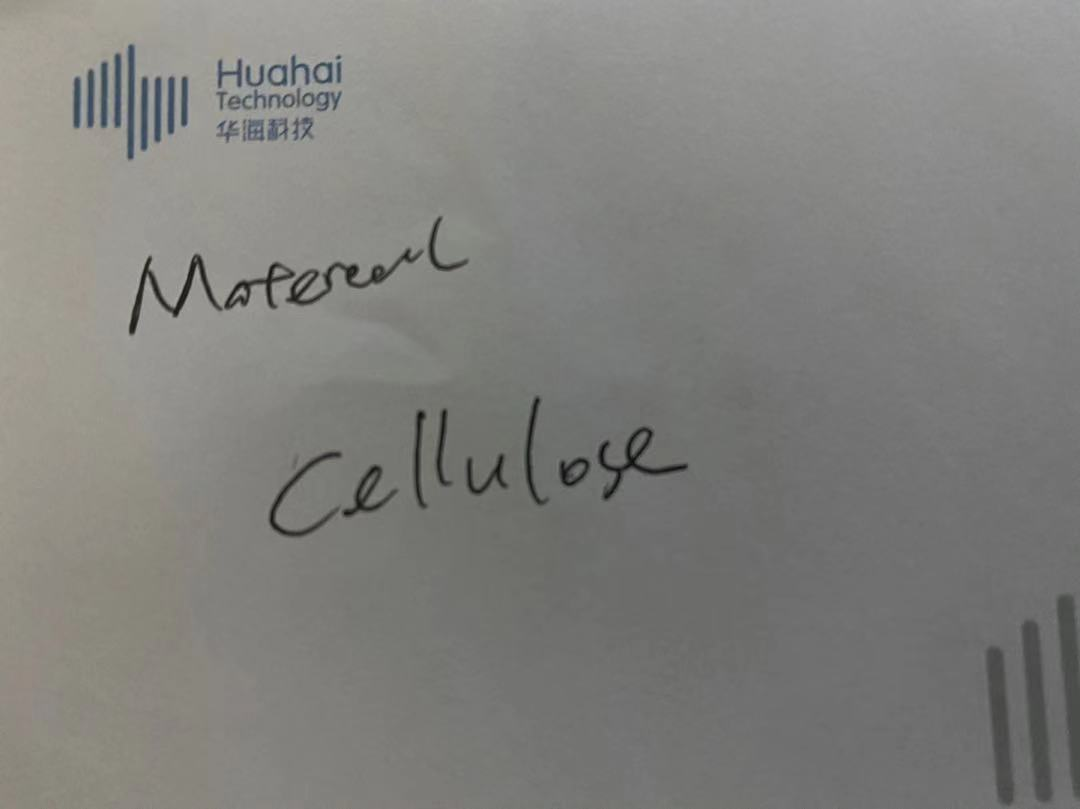 Huahai
Technology
华海科技
Matereal
Cellulose